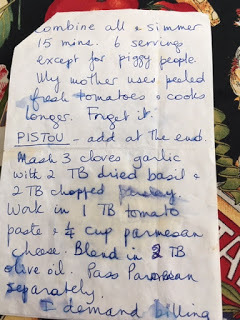 Combine all & simmer
15 mins. 6 servings
except for piggy people.
My mother uses peeled
fresh tomatoes & cooks
longer. Forget it.
PISTOU - add at the end.
Mash 3 cloves garlic
with 2 TB dried basil &
2 TB chopped parsley.
Work in 1 TB tomato
paste & 1/4 cup parmesan
cheese. Blend in 2 TB
olive oil. Pass Parmesan
separately.
I demand billing